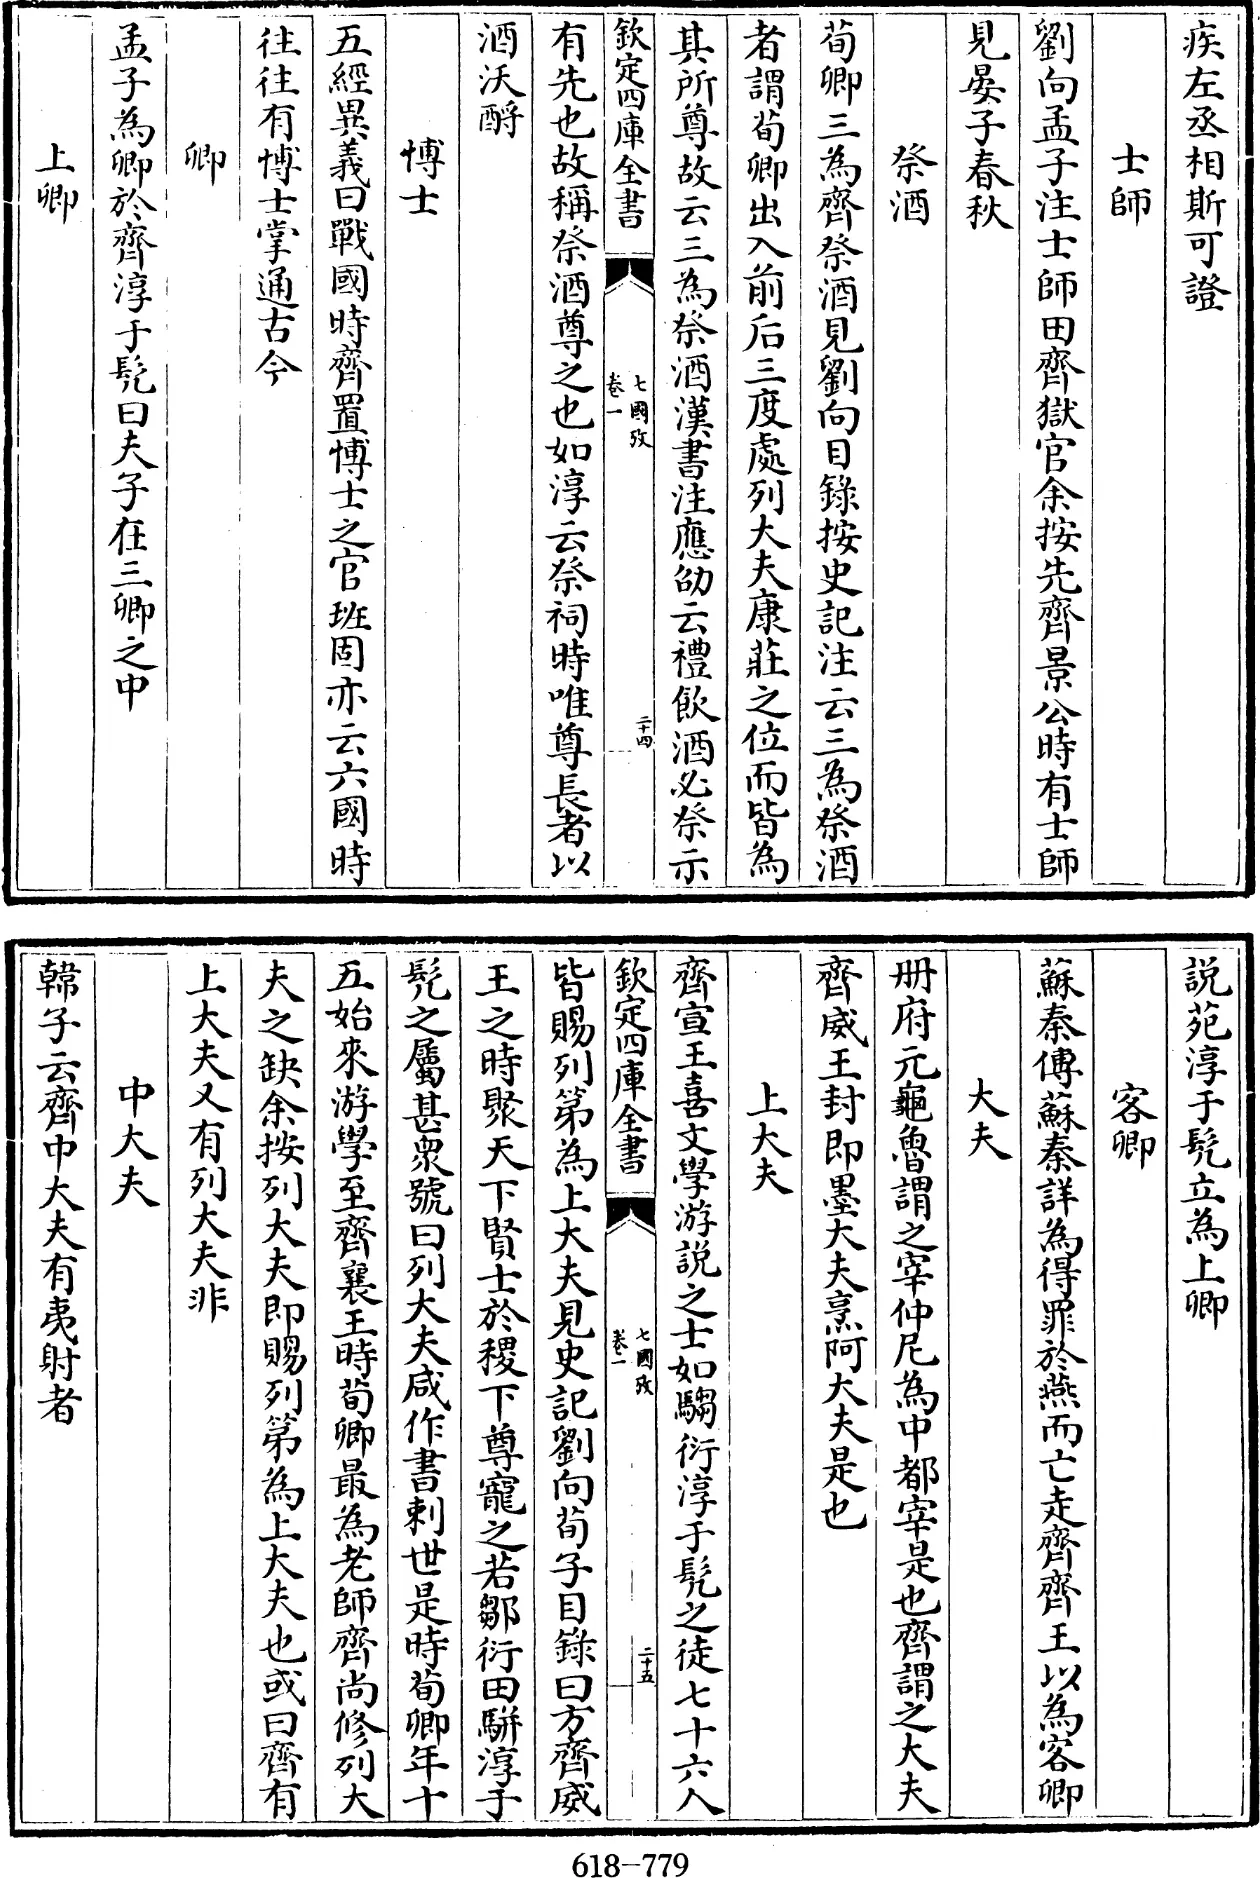 疾左丞相斯可證
士師
劉向孟子注士師田齊獄官余按先齊景公時有士師
見晏子春秋
祭酒
荀卿三為齊祭酒見劉向目錄按史記注云三為祭酒
者謂荀卿出入前后三度處列大夫康莊之位而皆為
其所尊故云三為祭酒漢書注應劭云禮飲酒必祭示
欽定四庫全書
七國攷
卷一
二十四
有先也故稱祭酒尊之也如淳云祭祠時唯尊長者以
酒沃酹
博士
五經異義曰戰國時齊置博士之官班固亦云六國時
往往有博士掌通古今
卿
孟子為卿於齊淳于髠曰夫子在三卿之中
上卿
說苑淳于髠立為上卿
客卿
蘇秦傳蘇秦詳為得罪於燕而亡走齊齊王以為客卿
大夫
册府元龜魯謂之宰仲尼為中都宰是也齊謂之大夫
齊威王封即墨大夫烹阿大夫是也
上大夫
齊宣王喜文學游說之士如騶衍淳于髠之徒七十六人
欽定四庫全書
七國攷
卷一
二十五
皆賜列第為上大夫見史記劉向荀子目錄曰方齊威
王之時聚天下賢士於稷下尊寵之若鄒衍田駢淳于
髠之屬甚衆號曰列大夫咸作書刺世是時荀卿年十
五始來游學至齊襄王時荀卿最為老師齊尚修列大
夫之缺余按列大夫即賜列第為上大夫也或曰齊有
上大夫又有列大夫非
中大夫
韓子云齊中大夫有夷射者
618-779